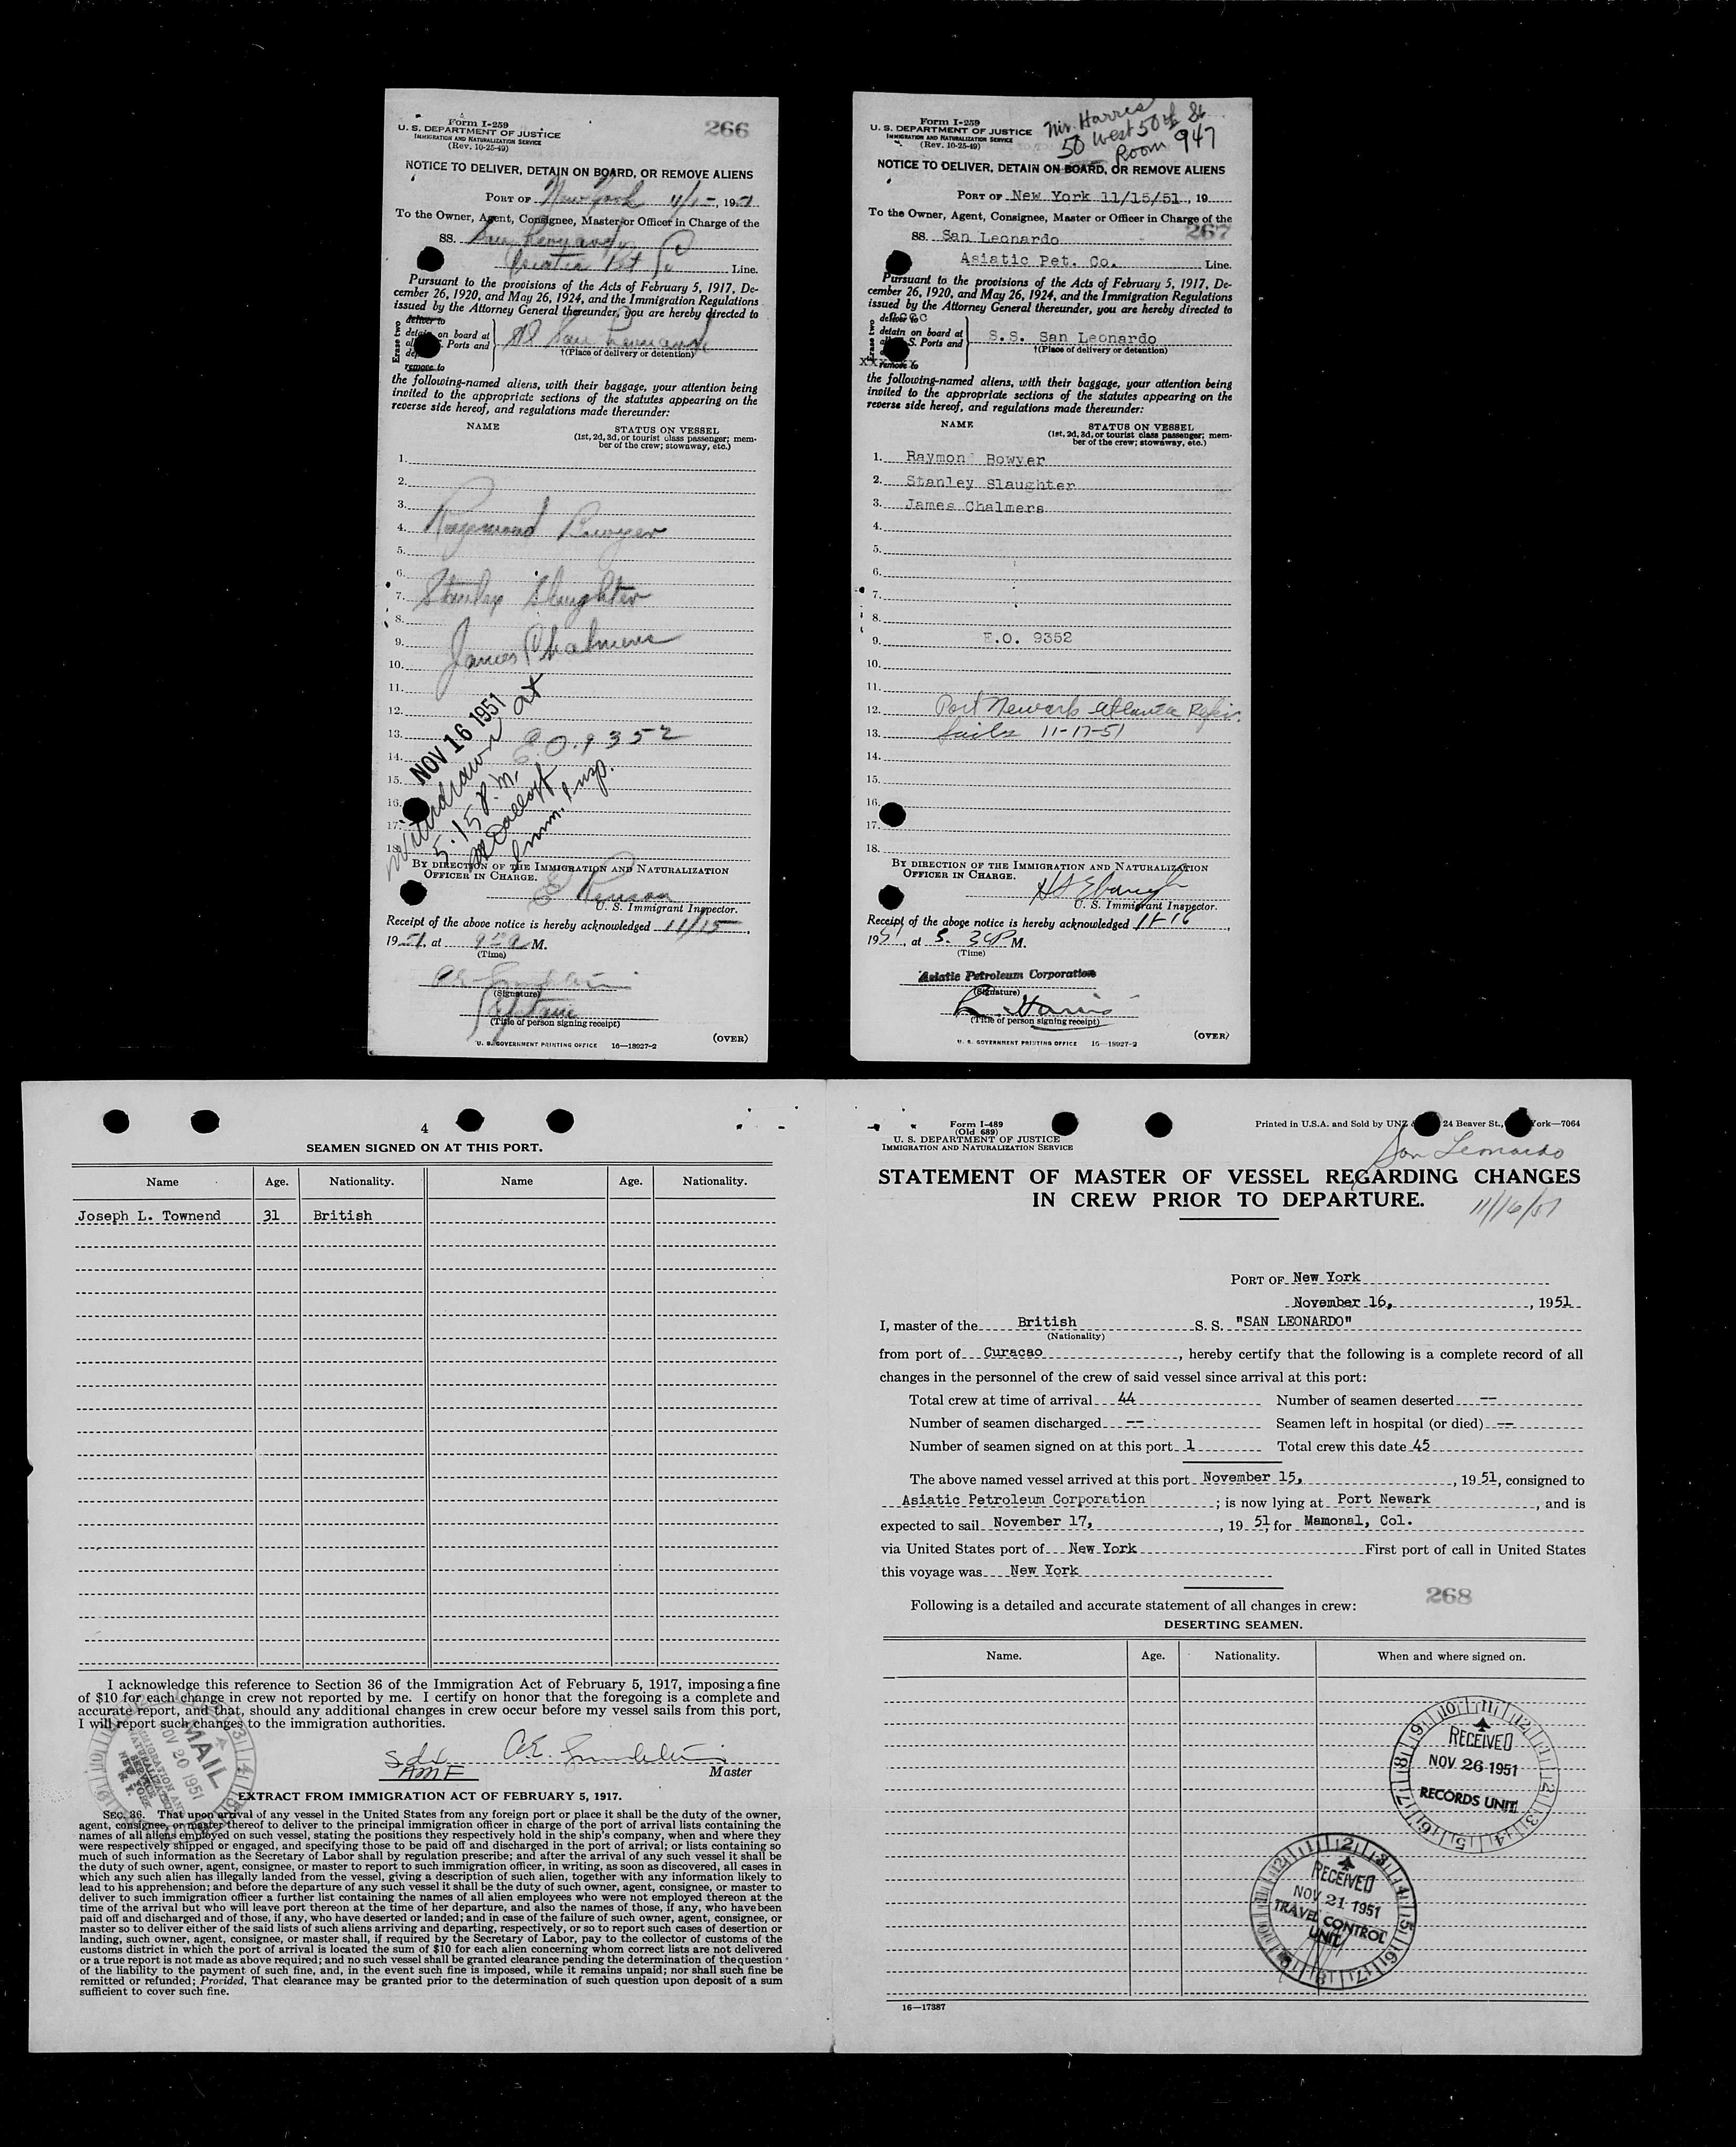 Form I-259
U. S. DEPARTMENT OF JUSTICE
IMMIGRATION AND NATURALIZATION SERVICE
(Rev. 10-25-49)
266
NOTICE TO DELIVER, DETAIN ON BOARD, OR REMOVE ALIENS
PORT OF New York 11/15, 1951
To the Owner, Agent, Consignee, Master or Officer in Charge of the
SS. San Leonardo
Asiatic Pet Co Line.
Pursuant to the provisions of the Acts of February 5, 1917, De-
cember 26, 1920, and May 26, 1924, and the Immigration Regulations
issued by the Attorney General thereunder, you are hereby directed to
Erase two
deliver to
detain on board at
Ports and
remove to
San Leonardo
†(Place of delivery or detention)
the following-named aliens, with their baggage, your attention being
invited to the appropriate sections of the statutes appearing on the
reverse side hereof, and regulations made thereunder:
NAME STATUS ON VESSEL
(1st, 2d, 3d, or tourist class passenger; mem-
ber of the crew; stowaway, etc.)
1.
2.
3.
4. Raymond Bowyer
5.
6.
7. Stanley Slaughter
8.
9. James Chalmers
10.
11.
12.
13. E.O. 9352
14.
15.
16.
17.
18.
NOV 16 1951
Withdrawn at
5.15 P.M.
Imm. Insp.
BY DIRECTION OF THE IMMIGRATION AND NATURALIZATION
OFFICER IN CHARGE.
U. S. Immigrant Inspector.
Receipt of the above notice is hereby acknowledged 11/15,
1951, at M.
(Time)
(Signature)
Captain
(Title of person signing receipt)
U. S. GOVERNMENT PRINTING OFFICE 16—18927-2
(OVER)
Form I-259
U. S. DEPARTMENT OF JUSTICE
IMMIGRATION AND NATURALIZATION SERVICE
(Rev. 10-25-49)
Mr. Harris
50 West 50th St
Room 947
NOTICE TO DELIVER, DETAIN ON BOARD, OR REMOVE ALIENS
PORT OF New York 11/15/51, 19
To the Owner, Agent, Consignee, Master or Officer in Charge of the
267
SS. San Leonardo
Asiatic Pet. Co. Line.
Pursuant to the provisions of the Acts of February 5, 1917, De-
cember 26, 1920, and May 26, 1924, and the Immigration Regulations
issued by the Attorney General thereunder, you are hereby directed to
Erase two
deliver to
detain on board at
S. Ports and
remove to
S.S. San Leonardo
†(Place of delivery or detention)
the following-named aliens, with their baggage, your attention being
invited to the appropriate sections of the statutes appearing on the
reverse side hereof, and regulations made thereunder:
NAME STATUS ON VESSEL
(1st, 2d, 3d, or tourist class passenger; mem-
ber of the crew; stowaway, etc.)
1. Raymon Bowyer
2. Stanley Slaughter
3. James Chalmers
4.
5.
6.
7.
8.
9. E.O. 9352
10.
11.
12. Port Newark Atlantic Refin.
13. Sails 11-17-51
14.
15.
16.
17.
18.
BY DIRECTION OF THE IMMIGRATION AND NATURALIZATION
OFFICER IN CHARGE.
U. S. Immigrant Inspector.
Receipt of the above notice is hereby acknowledged 11-16,
195, at 3.30 P M.
(Time)
Asiatic Petroleum Corporation
(Signature)
R. Harris
(Title of person signing receipt)
U. S. GOVERNMENT PRINTING OFFICE 16—18927-2
(OVER)
4
SEAMEN SIGNED ON AT THIS PORT.
Name Age. Nationality. Name Age. Nationality.
Joseph L. Townend 31 British
I acknowledge this reference to Section 36 of the Immigration Act of February 5, 1917, imposing a fine
of $10 for each change in crew not reported by me. I certify on honor that the foregoing is a complete and
accurate report, and that, should any additional changes in crew occur before my vessel sails from this port,
I will report such changes to the immigration authorities.
MAIL
NOV 20 1951
IMMIGRATION AND
NATURALIZATION
SERVICE
NEW YORK
N. Y.
Master
EXTRACT FROM IMMIGRATION ACT OF FEBRUARY 5, 1917.
SEC. 36. That upon arrival of any vessel in the United States from any foreign port or place it shall be the duty of the owner,
agent, consignee, or master thereof to deliver to the principal immigration officer in charge of the port of arrival lists containing the
names of all aliens employed on such vessel, stating the positions they respectively hold in the ship's company, when and where they
were respectively shipped or engaged, and specifying those to be paid off and discharged in the port of arrival; or lists containing so
much of such information as the Secretary of Labor shall by regulation prescribe; and after the arrival of any such vessel it shall be
the duty of such owner, agent, consignee, or master to report to such immigration officer, in writing, as soon as discovered, all cases in
which any such alien has illegally landed from the vessel, giving a description of such alien, together with any information likely to
lead to his apprehension; and before the departure of any such vessel it shall be the duty of such owner, agent, consignee, or master to
deliver to such immigration officer a further list containing the names of all alien employees who were not employed thereon at the
time of the arrival but who will leave port thereon at the time of her departure, and also the names of those, if any, who have been
paid off and discharged and of those, if any, who have deserted or landed; and in case of the failure of such owner, agent, consignee, or
master so to deliver either of the said lists of such aliens arriving and departing, respectively, or so to report such cases of desertion or
landing, such owner, agent, consignee, or master shall, if required by the Secretary of Labor, pay to the collector of customs of the
customs district in which the port of arrival is located the sum of $10 for each alien concerning whom correct lists are not delivered
or a true report is not made as above required; and no such vessel shall be granted clearance pending the determination of the question
of the liability to the payment of such fine, and, in the event such fine is imposed, while it remains unpaid; nor shall such fine be
remitted or refunded; Provided, That clearance may be granted prior to the determination of such question upon deposit of a sum
sufficient to cover such fine.
Form I-489
(Old 689)
U. S. DEPARTMENT OF JUSTICE
IMMIGRATION AND NATURALIZATION SERVICE
Printed in U.S.A. and Sold by UNZ 24 Beaver St., ork—7064
San Leonardo
STATEMENT OF MASTER OF VESSEL REGARDING CHANGES
IN CREW PRIOR TO DEPARTURE.
11/16/51
PORT OF New York
November 16, , 1951
I, master of the British S. S. "SAN LEONARDO"
(Nationality)
from port of Curacao, hereby certify that the following is a complete record of all
changes in the personnel of the crew of said vessel since arrival at this port:
Total crew at time of arrival 44 Number of seamen deserted --
Number of seamen discharged -- Seamen left in hospital (or died) --
Number of seamen signed on at this port 1 Total crew this date 45
The above named vessel arrived at this port November 15, , 1951, consigned to
Asiatic Petroleum Corporation ; is now lying at Port Newark , and is
expected to sail November 17, , 1951, for Mamonal, Col.
via United States port of New York First port of call in United States
this voyage was New York
268
Following is a detailed and accurate statement of all changes in crew:
DESERTING SEAMEN.
Name. Age. Nationality. When and where signed on.
RECEIVED
NOV 26 1951
RECORDS UNIT
RECEIVED
NOV 21 1951
TRAVEL CONTROL
UNIT
16—17387